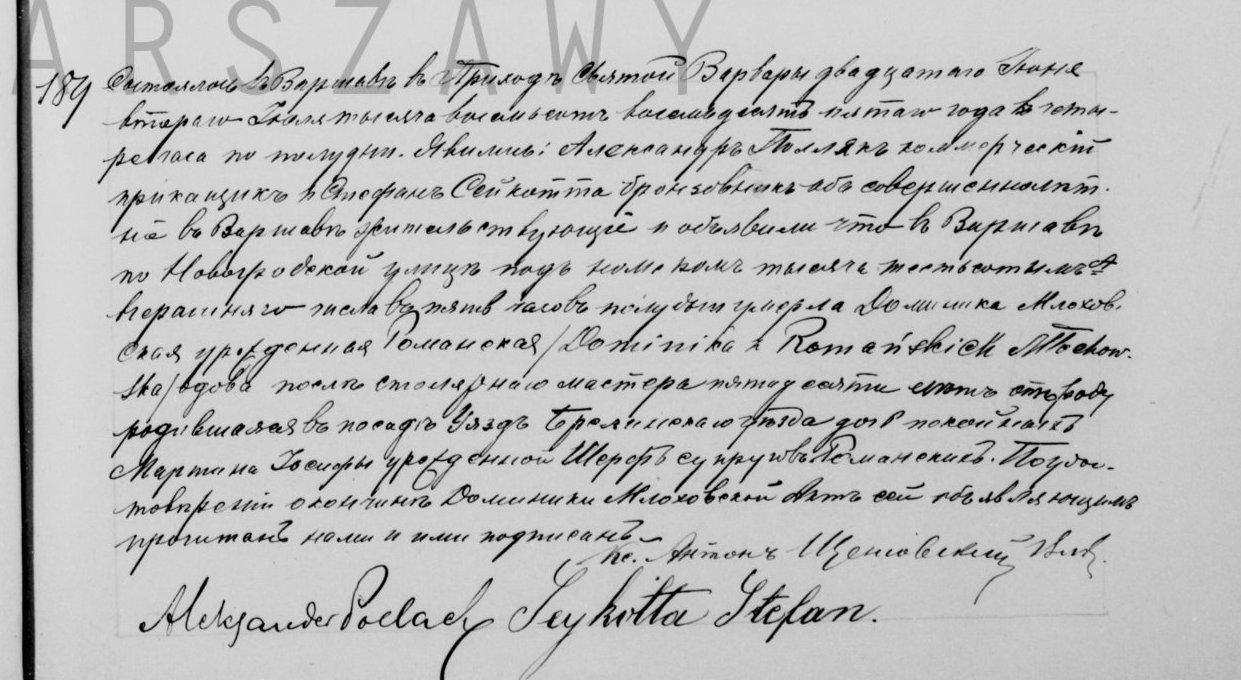 ARSZAWY
189 Состоялось въ Варшавѣ въ Приходѣ Святой Варвары двадцатаго Іюня
втораго Іюля тысяча восемьсотъ восемьдесятъ пятаго года въ четы-
ре часа по полудни. Явились: Александръ Поллякъ коммерческій
прикащикъ и Стефанъ Сейкотта бронзовникъ оба совершеннолѣт-
ніе въ Варшавѣ жительствующіе и объявили что въ Варшавѣ
по Новогродской улицѣ подъ номеромъ тысяча шестьсотымъ А
вчерашняго числа въ пять часовъ полудни умерла Доминика Млохов-
ская урожденная Романская /Dominika z Romańskich Młochow-
ska/ вдова послѣ столярнаго мастера пятидесяти лѣтъ отъ роду
родившаяся въ посадѣ Уяздъ Брезинскаго уѣзда дочь покойныхъ
Мартина Іосифы урожденной Шерфъ супруговъ Романскихъ. По удос-
товѣреніи о кончинѣ Доминики Млоховской Актъ сей объявляющимъ
прочитанъ нами и ими подписанъ
Кс. Антонъ
Aleksander Pollack Seykotta Stefan.